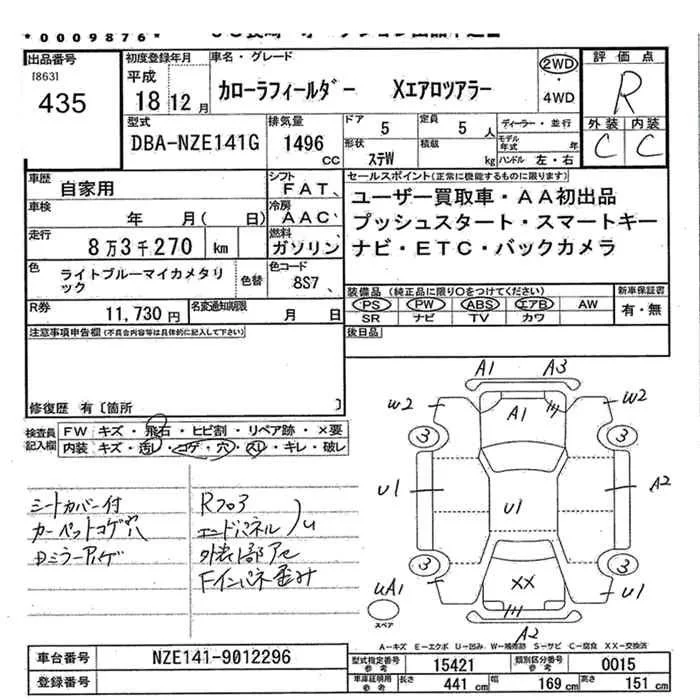 *0009876*
出品番号
[863]
435
初度登録年月
平成
18 12 月
車名・グレード
カローラフィールダー Xエアロツアラー
2WD
・
4WD
評価点
R
外装 内装
C C
型式
DBA-NZE141G
排気量
1496
CC
ドア
5
定員
5 人
ディーラー・並行
モデル年式 年
形状
ステW
積載
kg
ハンドル 左・右
車歴
自家用
シフト
FAT
車検
年 月( 日)
冷房
AAC
走行
8万3千270 km
燃料
ガソリン
色
ライトブルーマイカメタリック
色替
色コード
8S7
R券
11,730 円
名変通知期限
月 日
セールスポイント(正常に機能するものに限ります)
ユーザー買取車・AA初出品
プッシュスタート・スマートキー
ナビ・ETC・バックカメラ
装備品(純正品に限り○をつけてください)
PS PW ABS エアB AW
SR ナビ TV カワ
新車保証書
有・無
後日品
注意事項申告欄(不具合内容等は具体的に記入して下さい)
修復歴 有〔箇所 〕
検査員記入欄
FW キズ・飛石・ヒビ割・リペア跡・×要
内装 キズ・汚レ・コゲ・穴・スレ・キレ・破レ
シートカバー付
カーペットコゲ穴
Rフロア
エンドパネル
U
A1 A3
W2 A1 W2
3 3
U1 U1 A2
3 3
XX
UA1 U1
スペア
A2
A-キズ E-エクボ U-凹み W-補修跡 S-サビ C-腐食 XX-交換済
車台番号
NZE141-9012296
登録番号
型式指定番号
参考
15421
類別区分番号
参考
0015
車庫証明用
参考
長さ 441 cm
幅 169 cm
高さ 151 cm